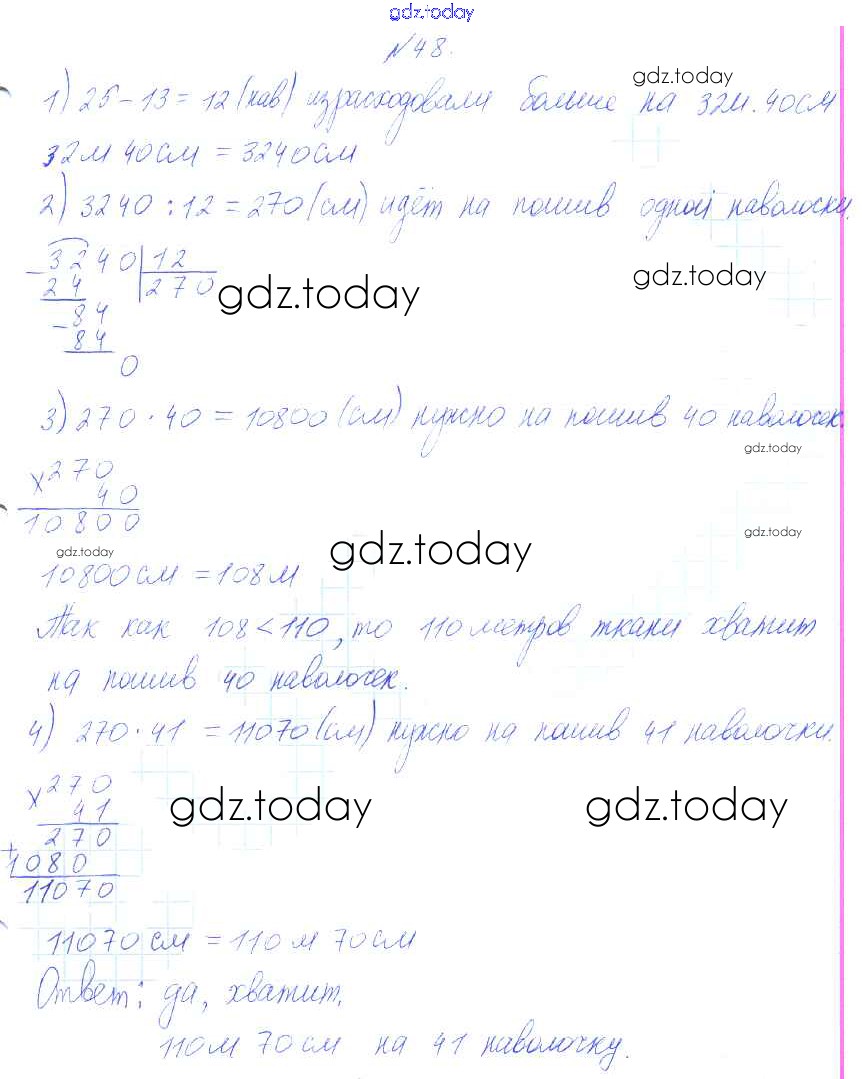 gdz.today
№48.
gdz.today
1) 25-13=12 (нав) израсходовали больше на 32м.40см
32м 40см = 3240см
2) 3240:12=270(см) идёт на пошив одной наволочки.
- 3240 | 12
24 270
gdz.today
gdz.today
- 84
84
0
3) 270·40=10800(см) нужно на пошив 40 наволочек.
gdz.today
х 270
40
10800
gdz.today
gdz.today
gdz.today
10800см = 108м
Так как 108<110, то 110 метров ткани хватит
на пошив 40 наволочек.
4) 270·41 = 11070(см) нужно на пошив 41 наволочки.
х 270
41
gdz.today
gdz.today
270
+
1080
11070
11070см = 110м 70см
Ответ: да, хватит,
110м 70см на 41 наволочку.